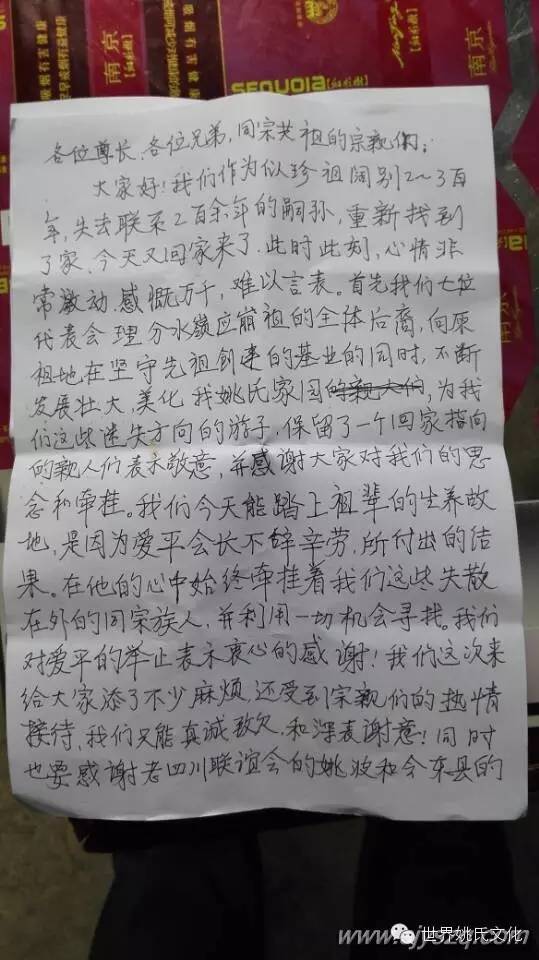 南京
SEQUOIA
南京
各位尊长、各位兄弟,同宗共祖的宗亲们:
大家好!我们作为似珍祖阔别2~3百
年,失去联系2百余年的嗣孙,重新找到
了家、今天又回家来了.此时此刻,心情非
常激动.感慨万千,难以言表。首先我们七位
代表会理分水嶺应崩祖的全体后裔,向原
祖地在坚守先祖创建的基业的同时,不断
发展壮大、美化我姚氏家园的亲人们,为我
们这些迷失方向的游子,保留了一个回家指向
的亲人们表示敬意,并感谢大家对我们的思
念和牵挂。我们今天能踏上祖辈的生养故
地,是因为爱平会长不辞辛劳,所付出的结
果。在他的心中始终牵挂着我们这些失散
在外的同宗族人,并利用一切机会寻找。我们
对爱平的举止表示衷心的感谢!我们这次来
给大家添了不少麻烦,还受到宗亲们的热情
接待,我们只能真诚致欠,和深表谢意!同时
也要感谢老四川联谊会的姚波和令东县的
世界姚氏文化